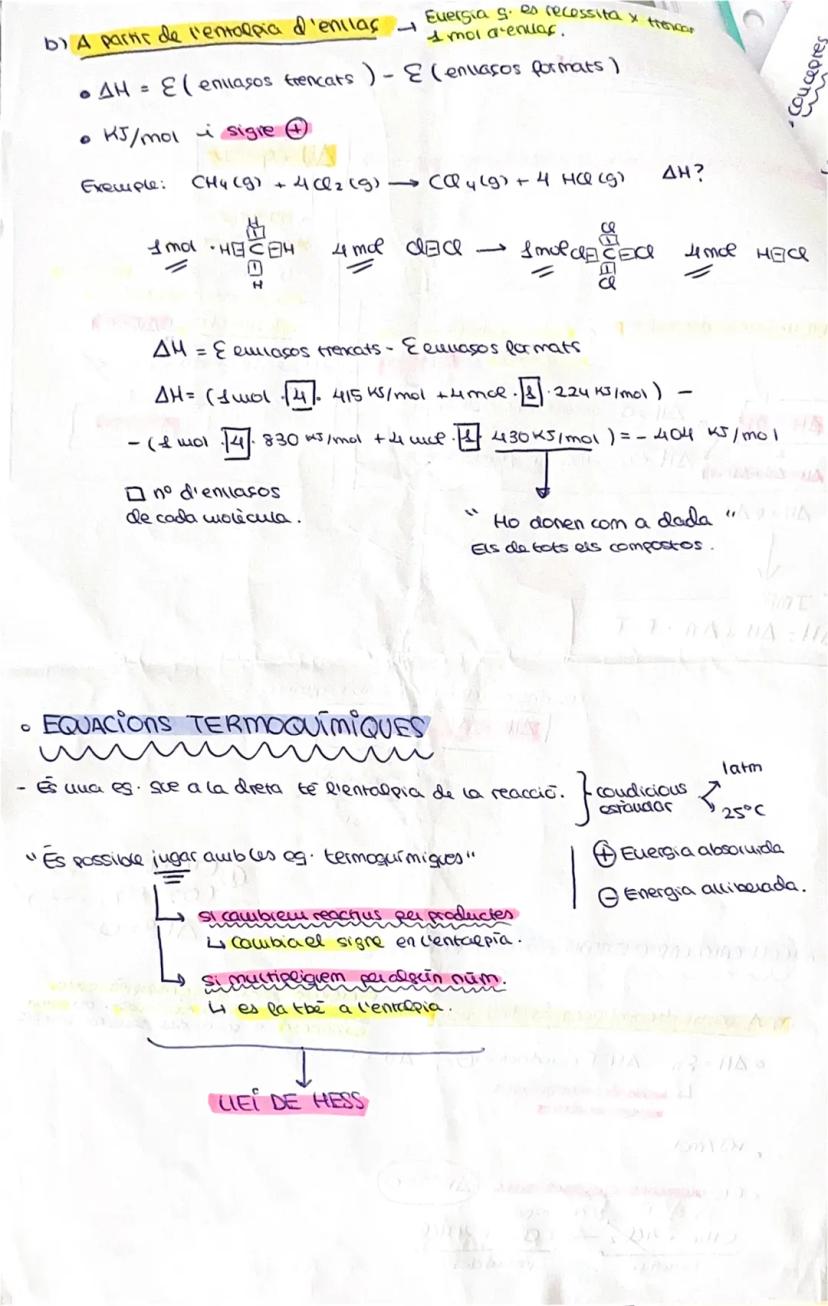 b) A partir de l'entalpia d'enllaç → Energia q. es necessita x trencar
1 mol d'enllaç.
• ΔH = Σ( enllaços trencats ) - Σ (enllaços formats)
• KJ/mol i signe ⊕
Exemple: CH4(g) + 4Cl2(g) → CCl4(g) + 4 HCl(g) ΔH?
H
1 mol · H 1 C 1 H 4 mol Cl 1 Cl → 1 mol Cl 1 C 1 Cl 4 mol H 1 Cl
H
ΔH = Σ enllaços trencats - Σ enllaços formats
ΔH = (1 mol · 4 · 415 KJ/mol + 4 mol · 1 · 224 KJ/mol) -
- (1 mol · 4 · 830 KJ/mol + 4 mol · 1 430 KJ/mol) = - 404 KJ/mol
□ nº d'enllaços
de cada molècula.
" Ho donen com a dada "
Els de tots els compostos.
conceptes
• EQUACIONS TERMOQUÍMIQUES
- És una eq. que a la dreta té l'entalpia de la reacció. } condicions estàndar
1atm
25°C
"És possible jugar amb les eq. termoquímiques"
⊕ Energia absorvida
⊖ Energia alliberada.
↳ si canviem reactius per productes
↳ canvia el signe en l'entalpia.
↳ si multipliquem per algún núm.
↳ es fa tbé a l'entalpia.
LLEI DE HESS